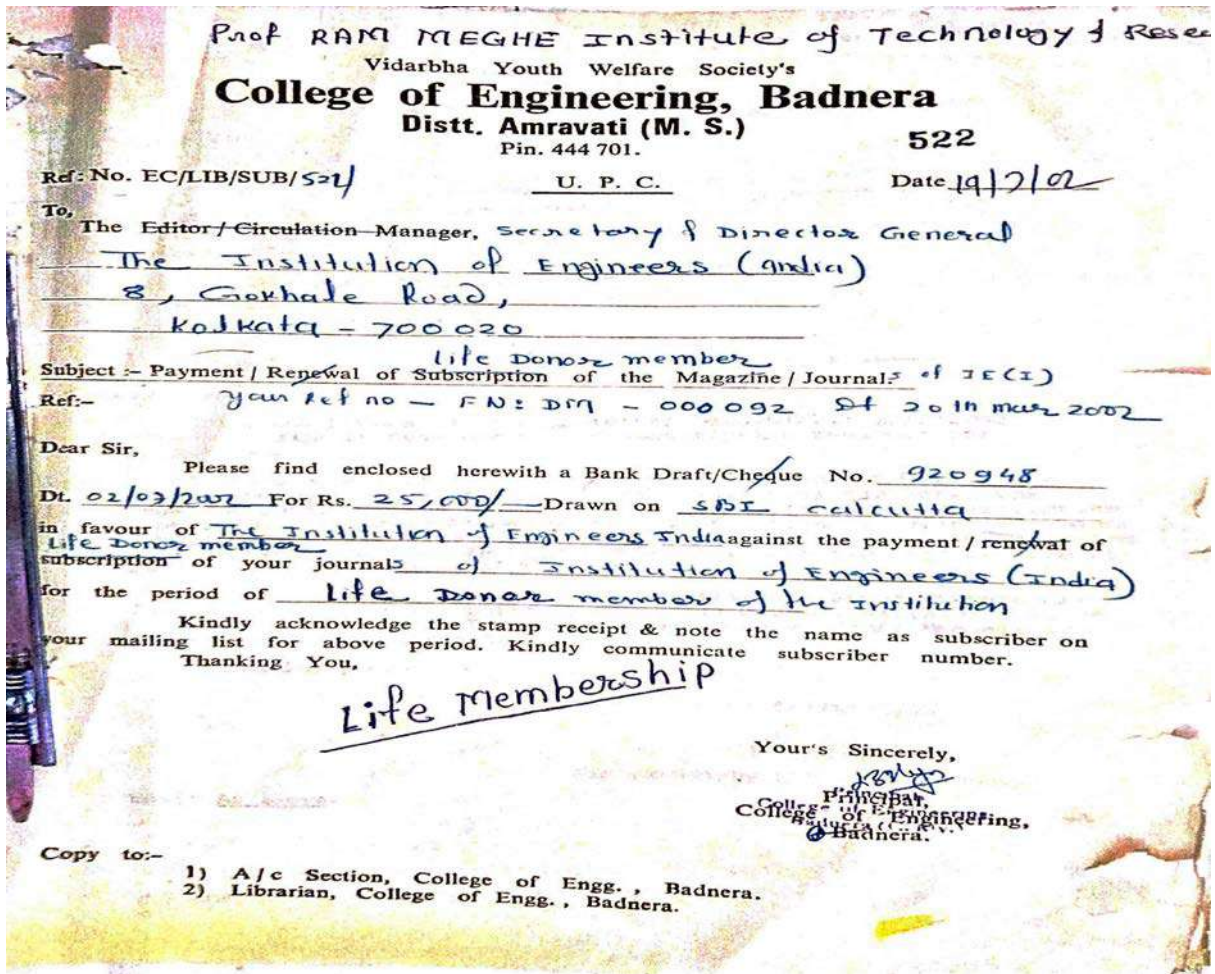 Prof RAM MEGHE Institute of Technology & Resea
Vidarbha Youth Welfare Society's
College of Engineering, Badnera
Distt. Amravati (M. S.)
Pin. 444 701.
522
Ref: No. EC/LIB/SUB/522/
U. P. C.
Date 19/7/02
To,
The Editor / Circulation Manager, Secretary & Director General
The Institution of Engineers (India)
8, Gokhale Road,
Kolkata - 700 020
life Donor member
Subject :- Payment / Renewal of Subscription of the Magazine / Journals of IE(I)
Ref:- your Ref no - FN: DM - 000092 Dt 20th mar 2002
Dear Sir,
Please find enclosed herewith a Bank Draft/Cheque No. 920948
Dt. 02/07/2002 For Rs. 25,000/- Drawn on SBI calcutta
in favour of The Institution of Engineers India against the payment / renewal of
Life Donor member
subscription of your journals of Institution of Engineers (India)
for the period of life Donor member of the Institution
Kindly acknowledge the stamp receipt & note the name as subscriber on
your mailing list for above period. Kindly communicate subscriber number.
Thanking You,
Life Membership
Your's Sincerely,
Principal,
College of Engineering,
Badnera.
Copy to:-
1) A/c Section, College of Engg. , Badnera.
2) Librarian, College of Engg. , Badnera.